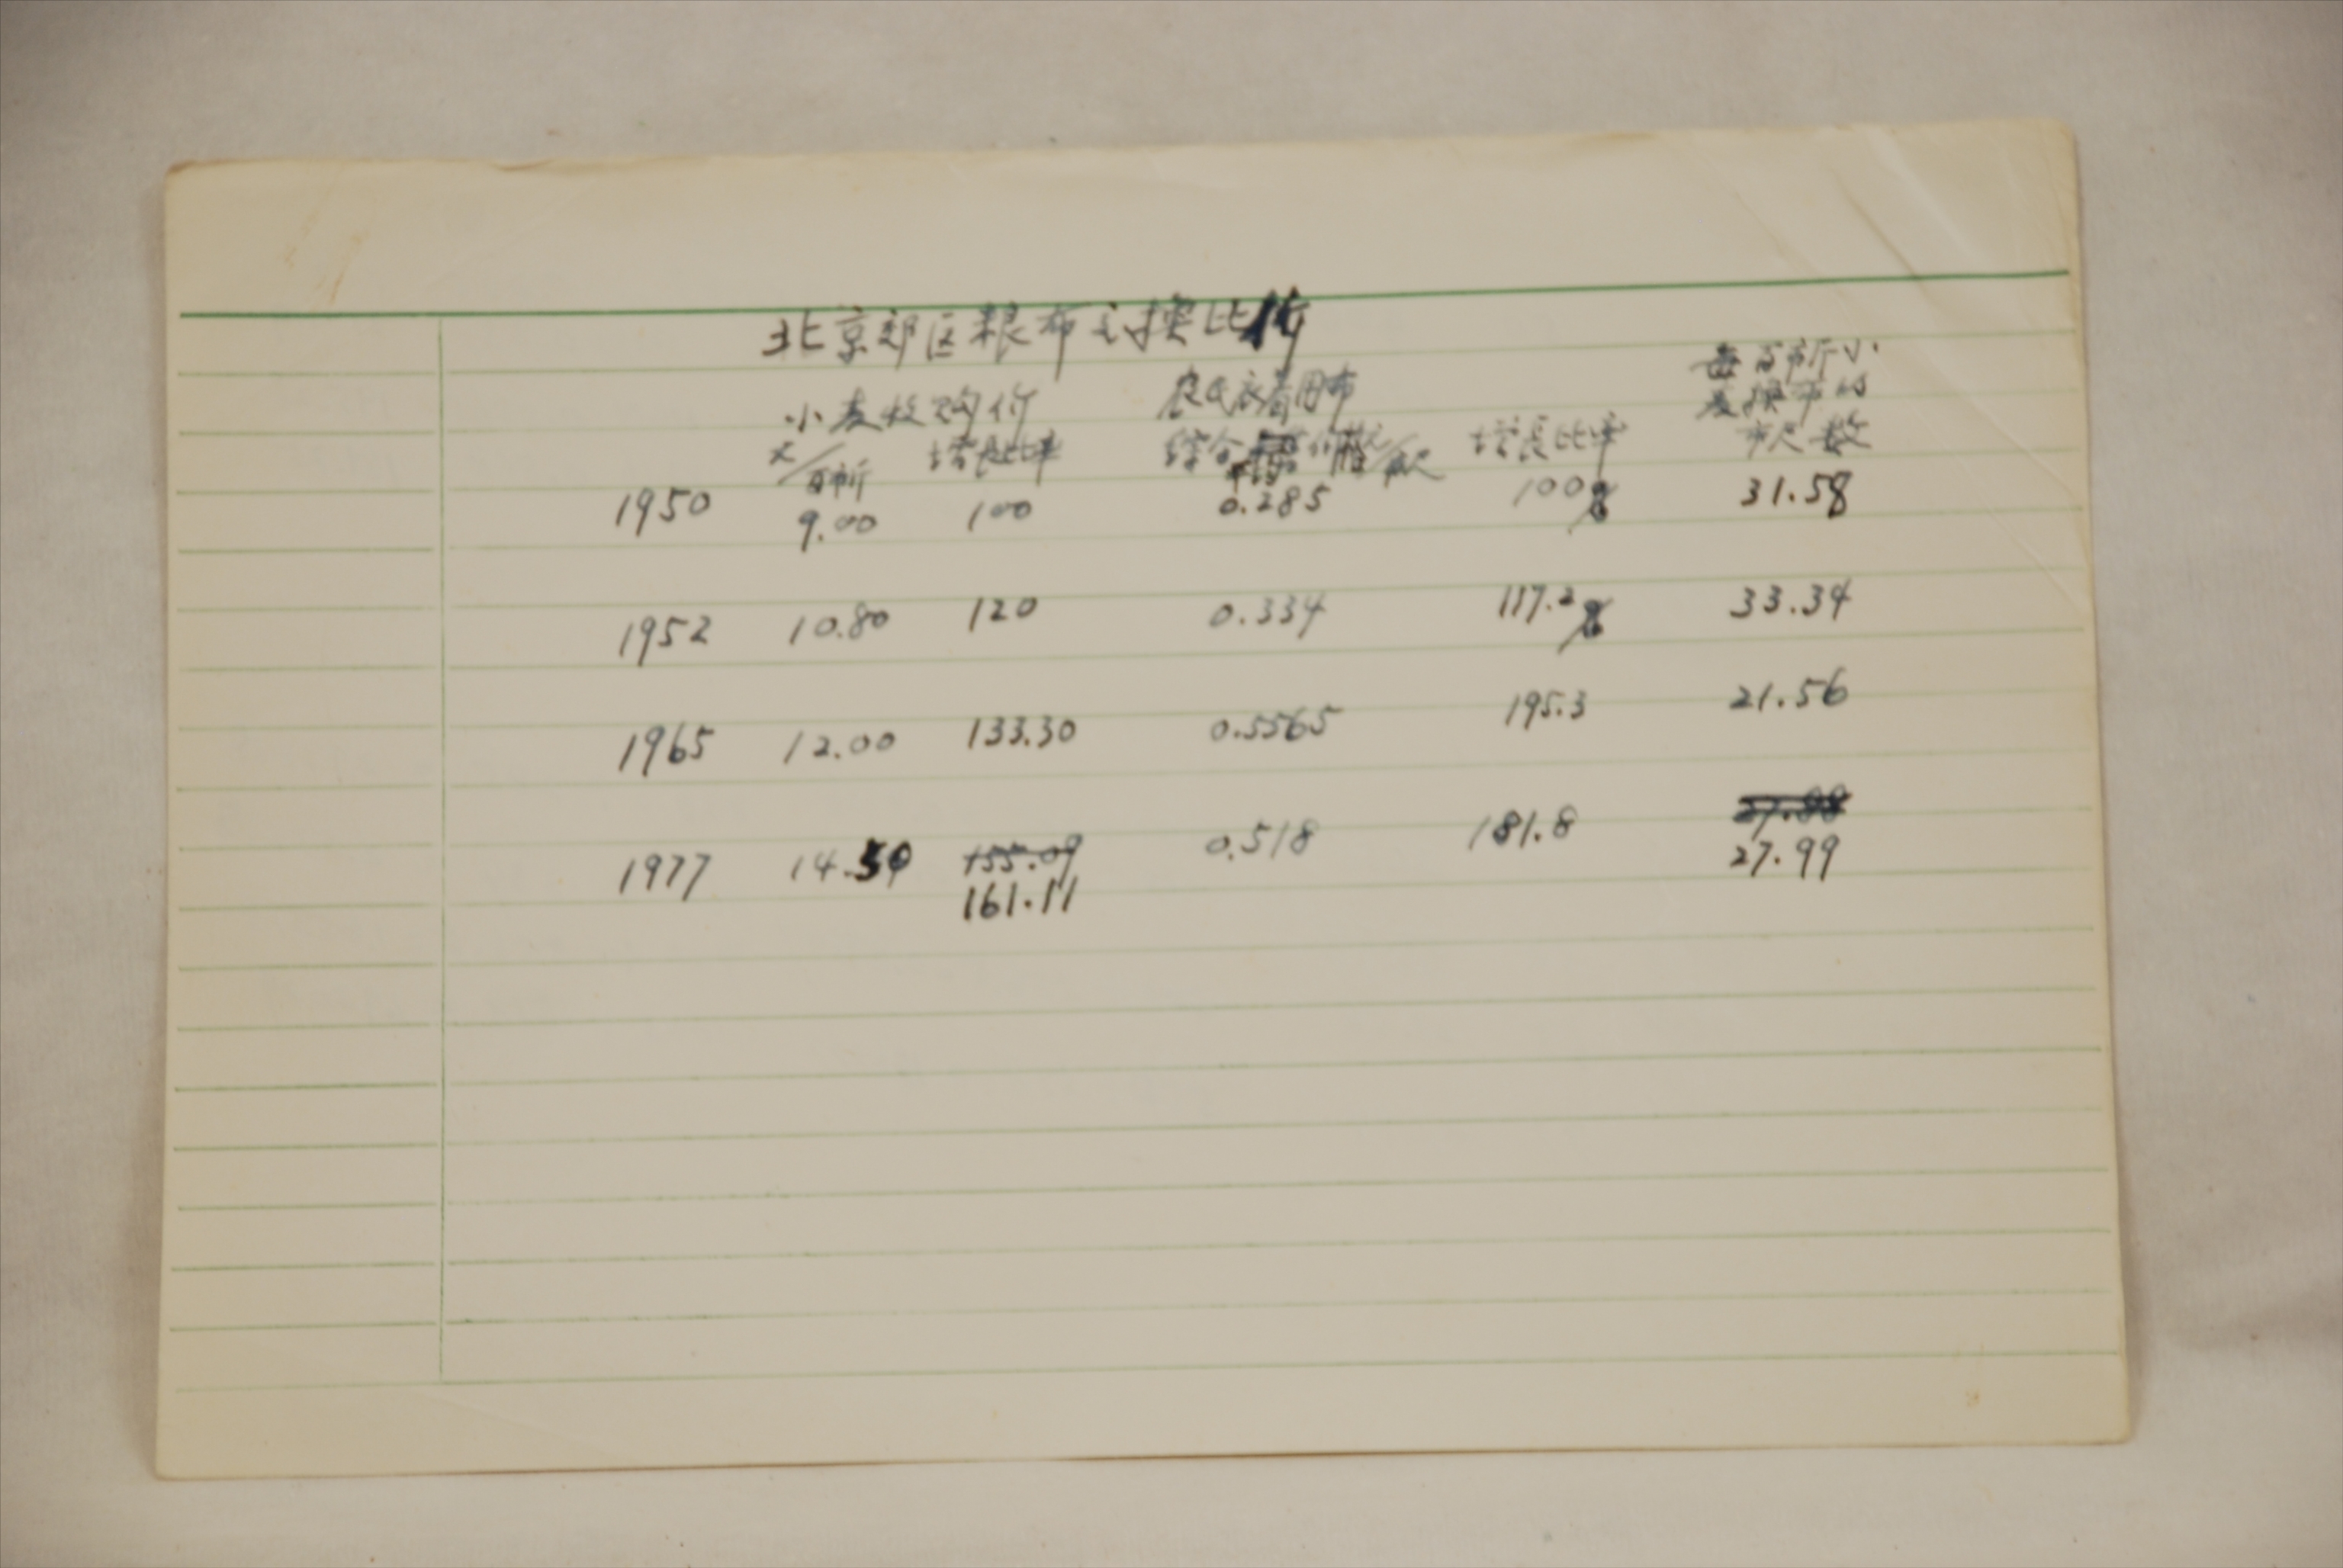 北京郊区粮布交换比价
小麦收购价 农民衣着用布 每百市斤小
元/百市斤 增长比率 综合平均价格元/市尺 增长比率 麦换布的
市尺数
1950 9.00 100 0.285 100% 31.58
1952 10.80 120 0.334 117.2% 33.34
1965 12.00 133.30 0.5565 195.3 21.56
1977 14.50 155.09 0.518 181.8
161.11 27.99